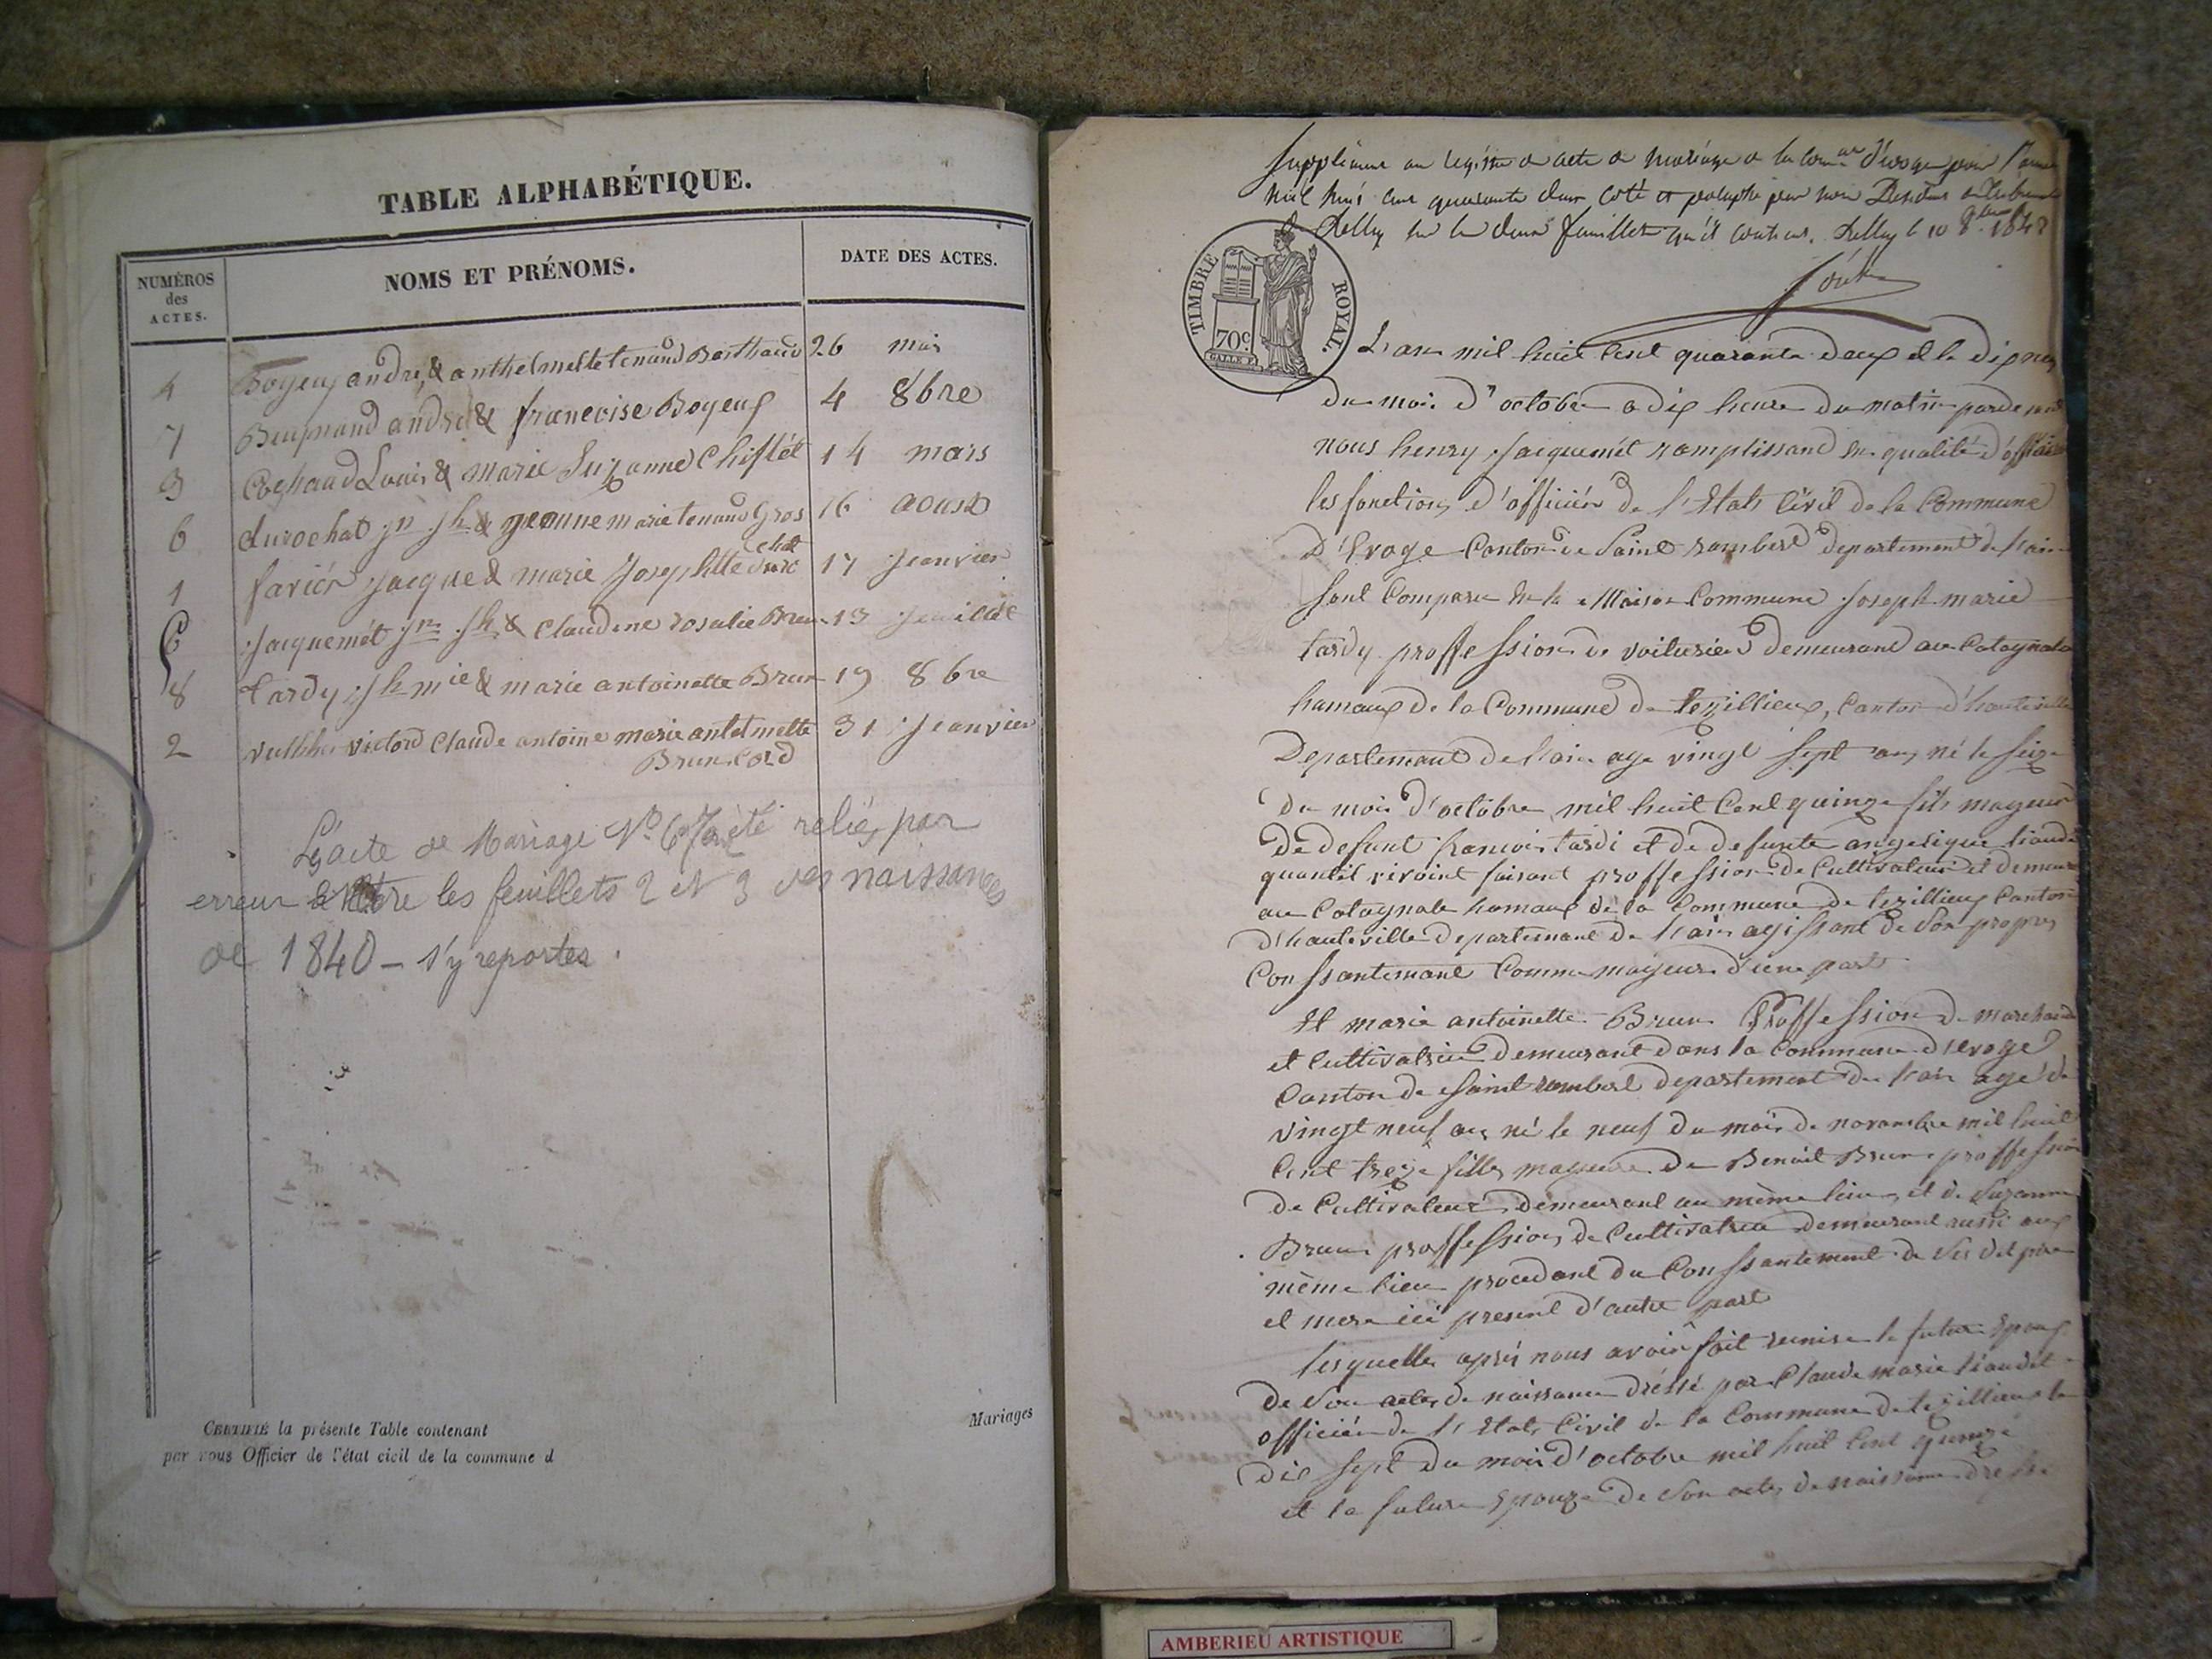 TABLE ALPHABÉTIQUE.
NUMÉROS des ACTES.
NOMS ET PRÉNOMS.
DATE DES ACTES.
4 Boyeux andré & anthelmette tenand Barthaud 26 mai
7 andré & francoise Boyeux 4 8bre
3 Cochaud Louis & marie Suzanne Chiflét 14 mars
6 durochat jn jh & jeanne marie tenand Gros 16 aoust
1 fariér jacque & marie Josephtte Durochat 17 Jeanvier
6 Jacquemét jn jh & Claudine rosalie Brun 13 Jeuillét
8 tardy jh mie & marie antoinette Brun 19 8bre
2 victord Claude antoine marie antelmette 31 Jeanvier
Brun Cord
L'acte de Mariage No 6 a été relié, par
erreur entre les feuillets 2 et 3 des naissances
de 1840 – s'y reporter.
CERTIFIÉ la présente Table contenant
Mariages
par nous Officier de l'état civil de la commune d
Supplément au registre de acte de mariage de la comne d'evoge pour l'année
mil huit cent quarante deux coté et paraphé par nous
Belley sur les deux feuillets qu'il contient. Belley le 10 8bre 1842
TIMBRE ROYAL.
70c.
L'an mil huit cent quarante deux et le dix neuf
du mois d'octobre a dix heure du matin parde vant
nous henry Jacquemét ramplissand en qualité d'
les fonctions d'officiér de l'Etats Civil de la Commune
D'Evoge Canton de Saint rambert departement de l'ain
sont Comparu en la Maison Commune Joseph marie
tardy proffession de voiturier demeurand au Catagnole
hamaux de la Commune de tezillieux, Canton d'hauteville
Departemant de l'ain age vingt sept ans né le seize
du mois d'octobre mil huit Cent quinze fils mayeur
de defunt francois tardi et de defunte angelique
quand il vivoint faisant proffession de Cultivateur et demeurant
au Catagnole hamaux de la Commune de tezillieux Canton
d'hauteville departemant de l'ain agissant de son propre
Conssantemant Comme mayeur d'une part
Et marie antoinette Brun Proffession de marchande
et Cultivatrice demeurant dans la Commune d'Evoge
Canton de Saint rambert departement de l'ain agé de
vingt neuf ans né le neuf du mois de novambre mil huit
Cent treize fille mayeure de Benoit Brun proffession
de Cultivateur demeurant au même lieu, et de Suzanne
Brun proffession de Cultivatrice demeurant aussi aux
même lieu procedant du Conssantement de ses dit père
et mere ici present d'autre part
lesquelles aprés nous avoir fait remise le futur Epoux
de son acte de naissance dréssé par Claude marie
officiér de l'Etats Civil de la Commune de tezillieux le
dix sept du mois d'octobre mil huit Cent quinze
et la future Epouze de son acte de naissance dressé
AMBERIEU ARTISTIQUE